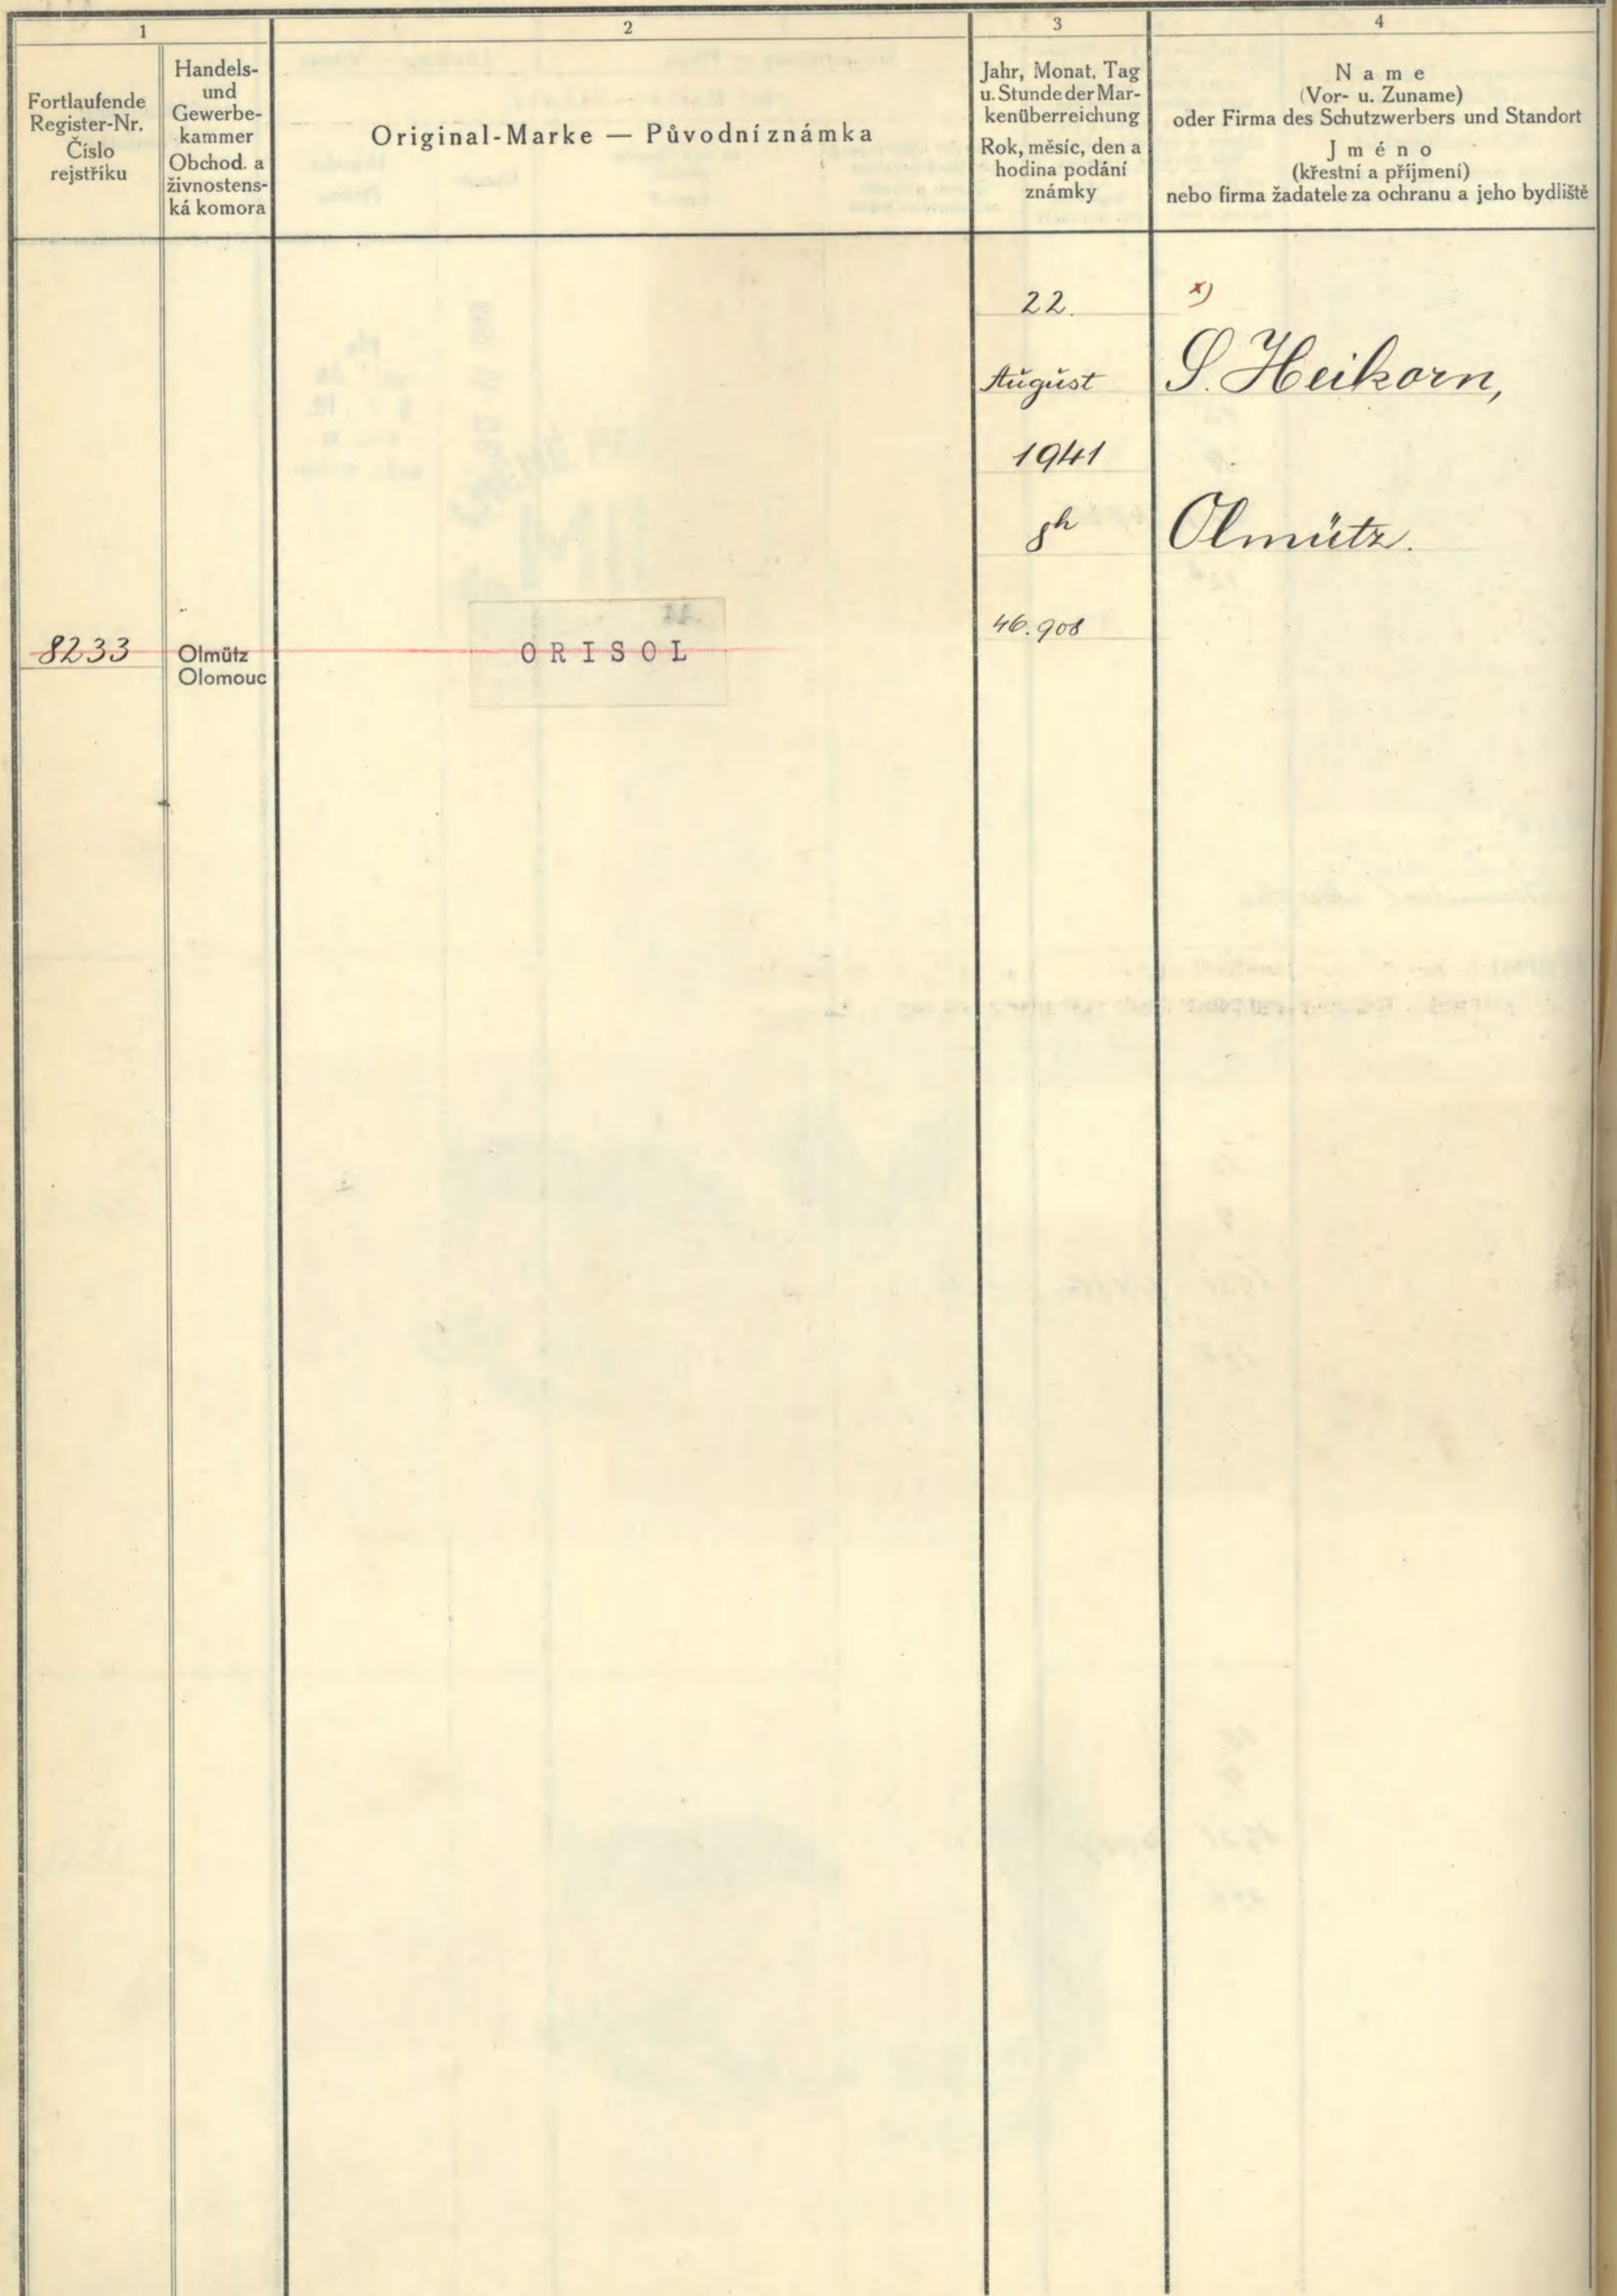 1
2
3
4
Fortlaufende
Register-Nr.
Číslo
rejstříku
Handels-
und
Gewerbe-
kammer
Obchod. a
živnostens-
ká komora
Original-Marke — Původní známka
Jahr, Monat, Tag
u. Stunde der Mar-
kenüberreichung
Rok, měsíc, den a
hodina podání
známky
Name
(Vor- u. Zuname)
oder Firma des Schutzwerbers und Standort
Jméno
(křestní a příjmení)
nebo firma žadatele za ochranu a jeho bydliště
22.
x)
August
S. Heikorn,
1941
8h
Olmütz.
46.908
8233
Olmütz
Olomouc
ORISOL